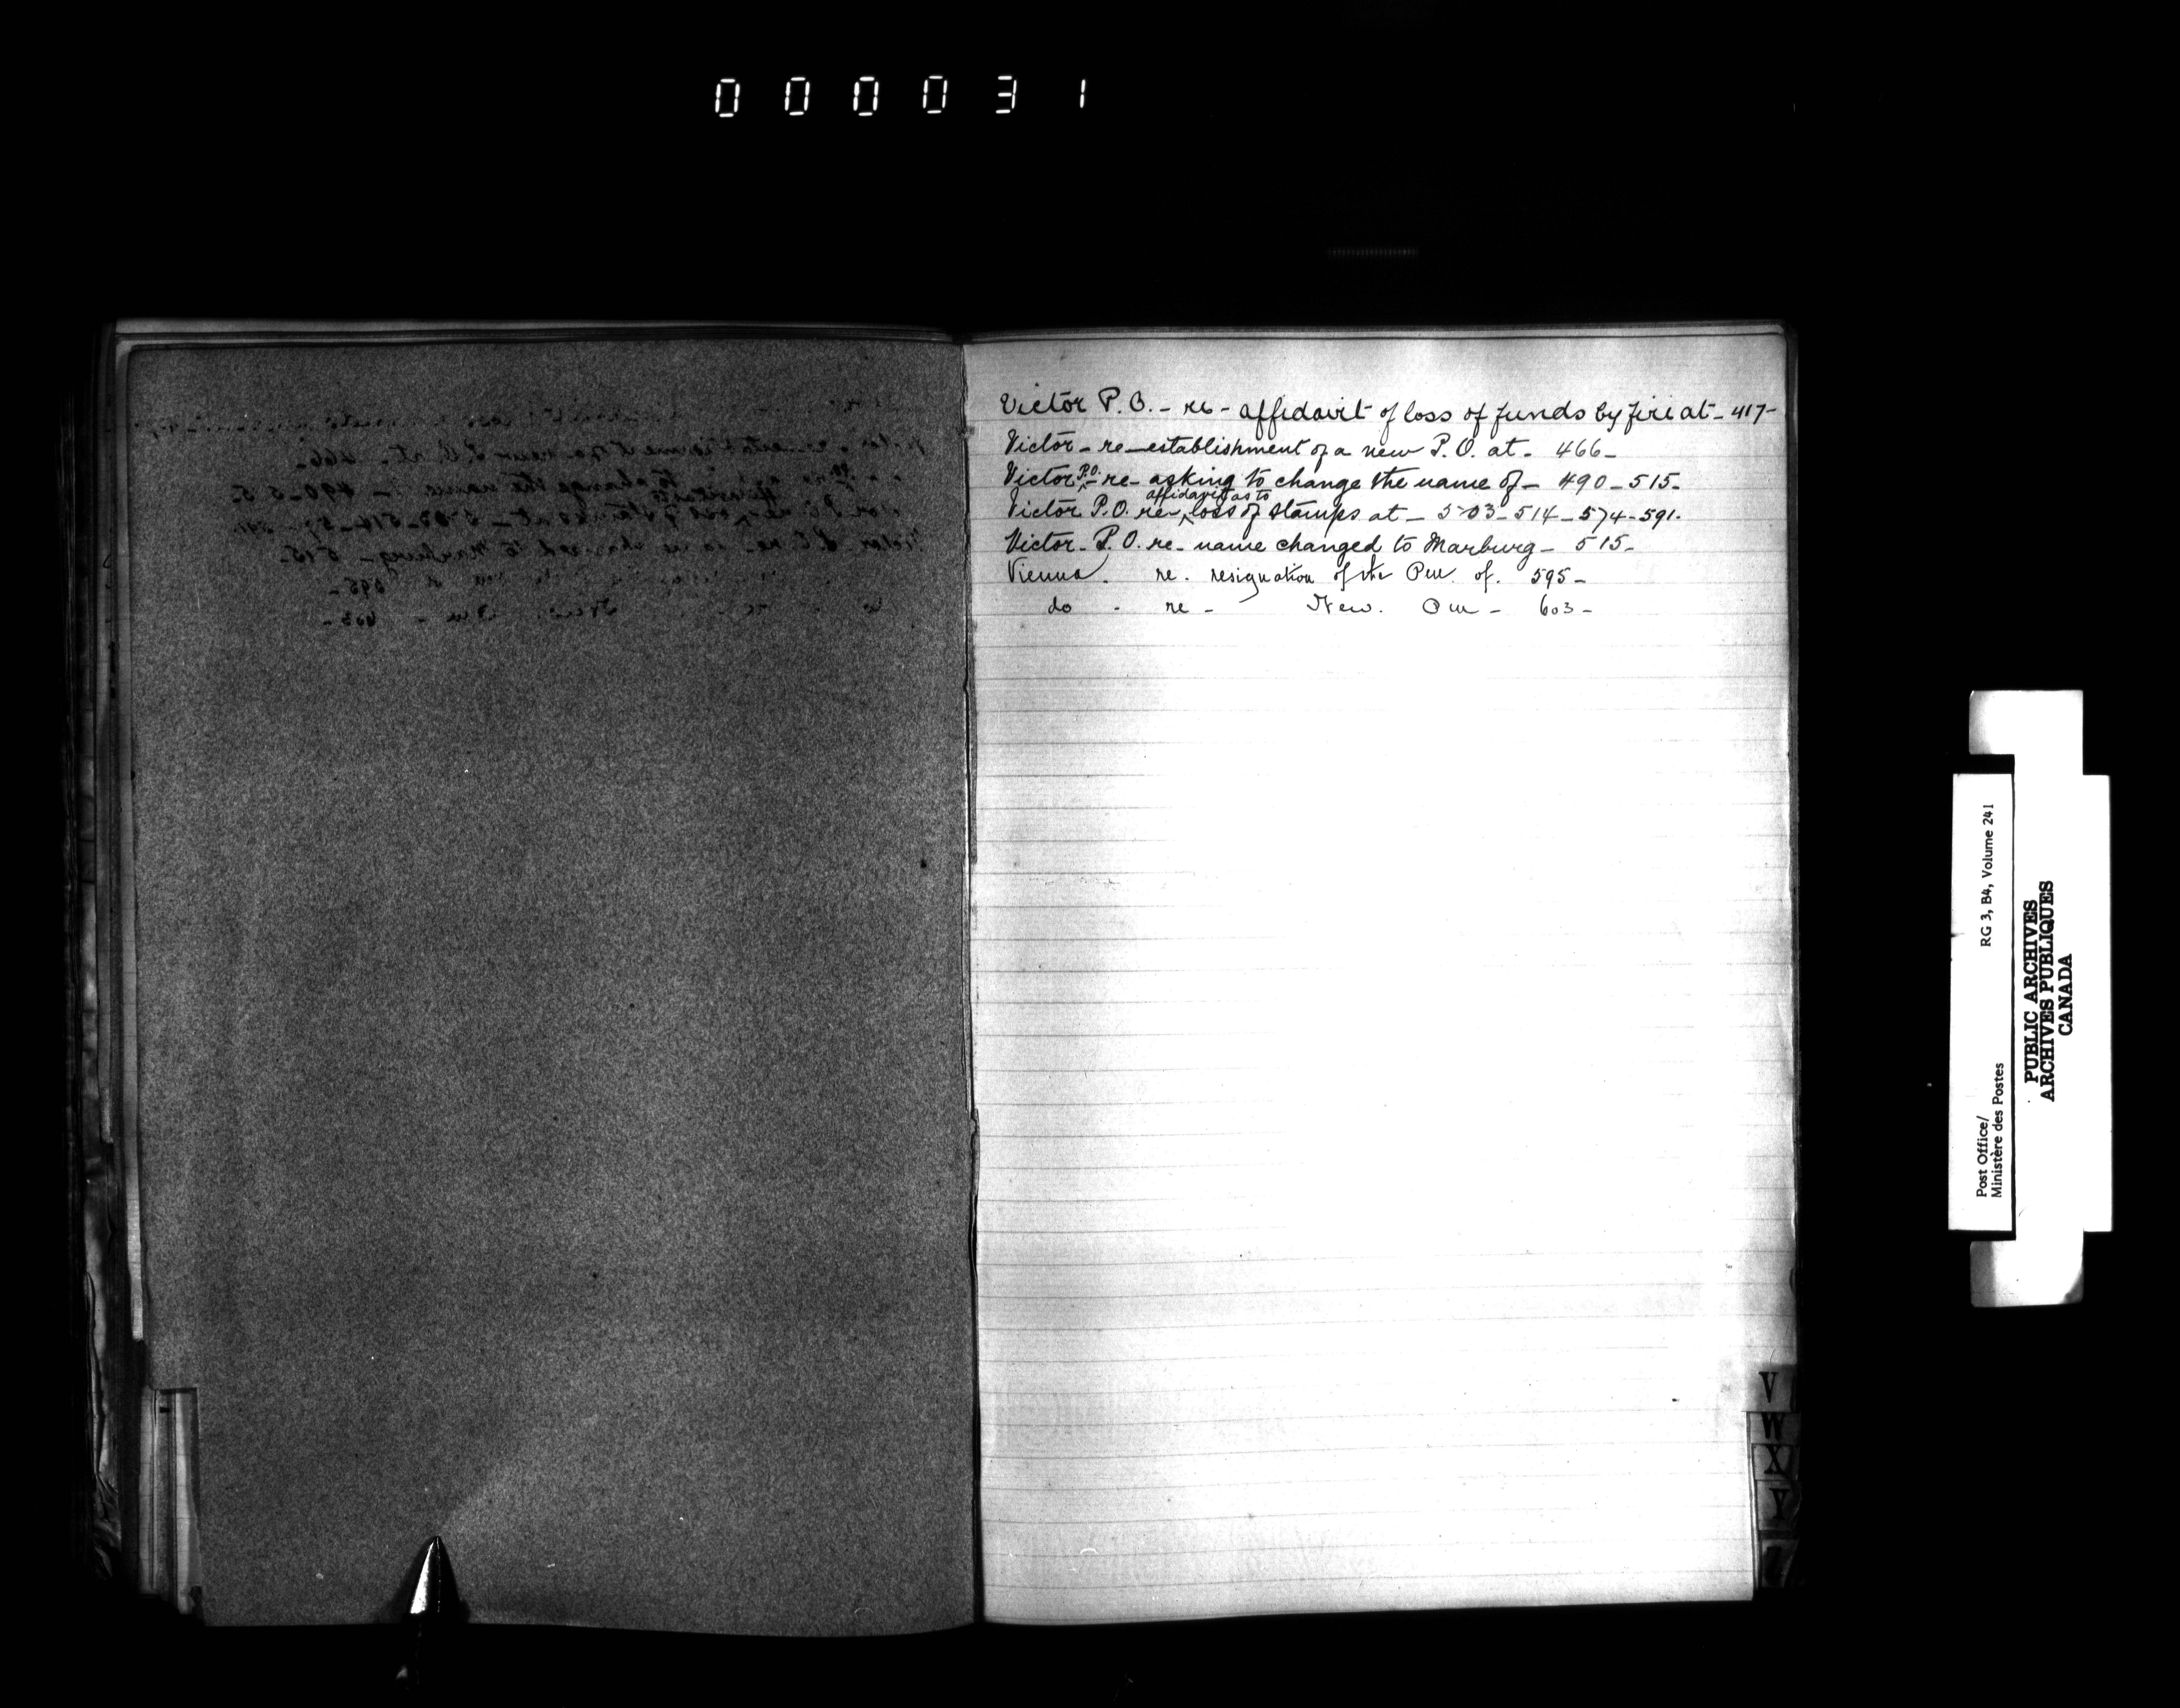 000031
Victor P.O. - re - affidavit of loss of funds by fire at - 417 -
Victor - re - establishment of a new P.O. at - 466 -
Victor P.O. - re - asking to change the name of - 490 - 515 -
Victor P.O. re - affidavit as to loss of stamps at - 503 - 514 - 574 - 591.
Victor - P.O. re - name changed to Marburg - 515 -
Vienna. re. resignation of the Pm. of. 595 -
do - re - New. Pm - 603 -
V
W
X
Y
Z
Post Office/ RG 3, B4, Volume 241
Ministère des Postes
PUBLIC ARCHIVES
ARCHIVES PUBLIQUES
CANADA